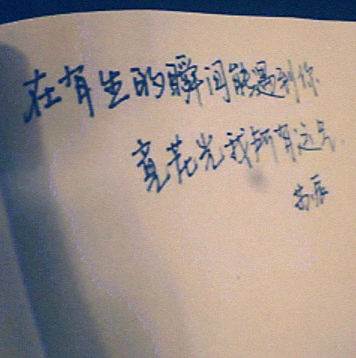 在有生的瞬间能遇到你
竟花光我所有运气